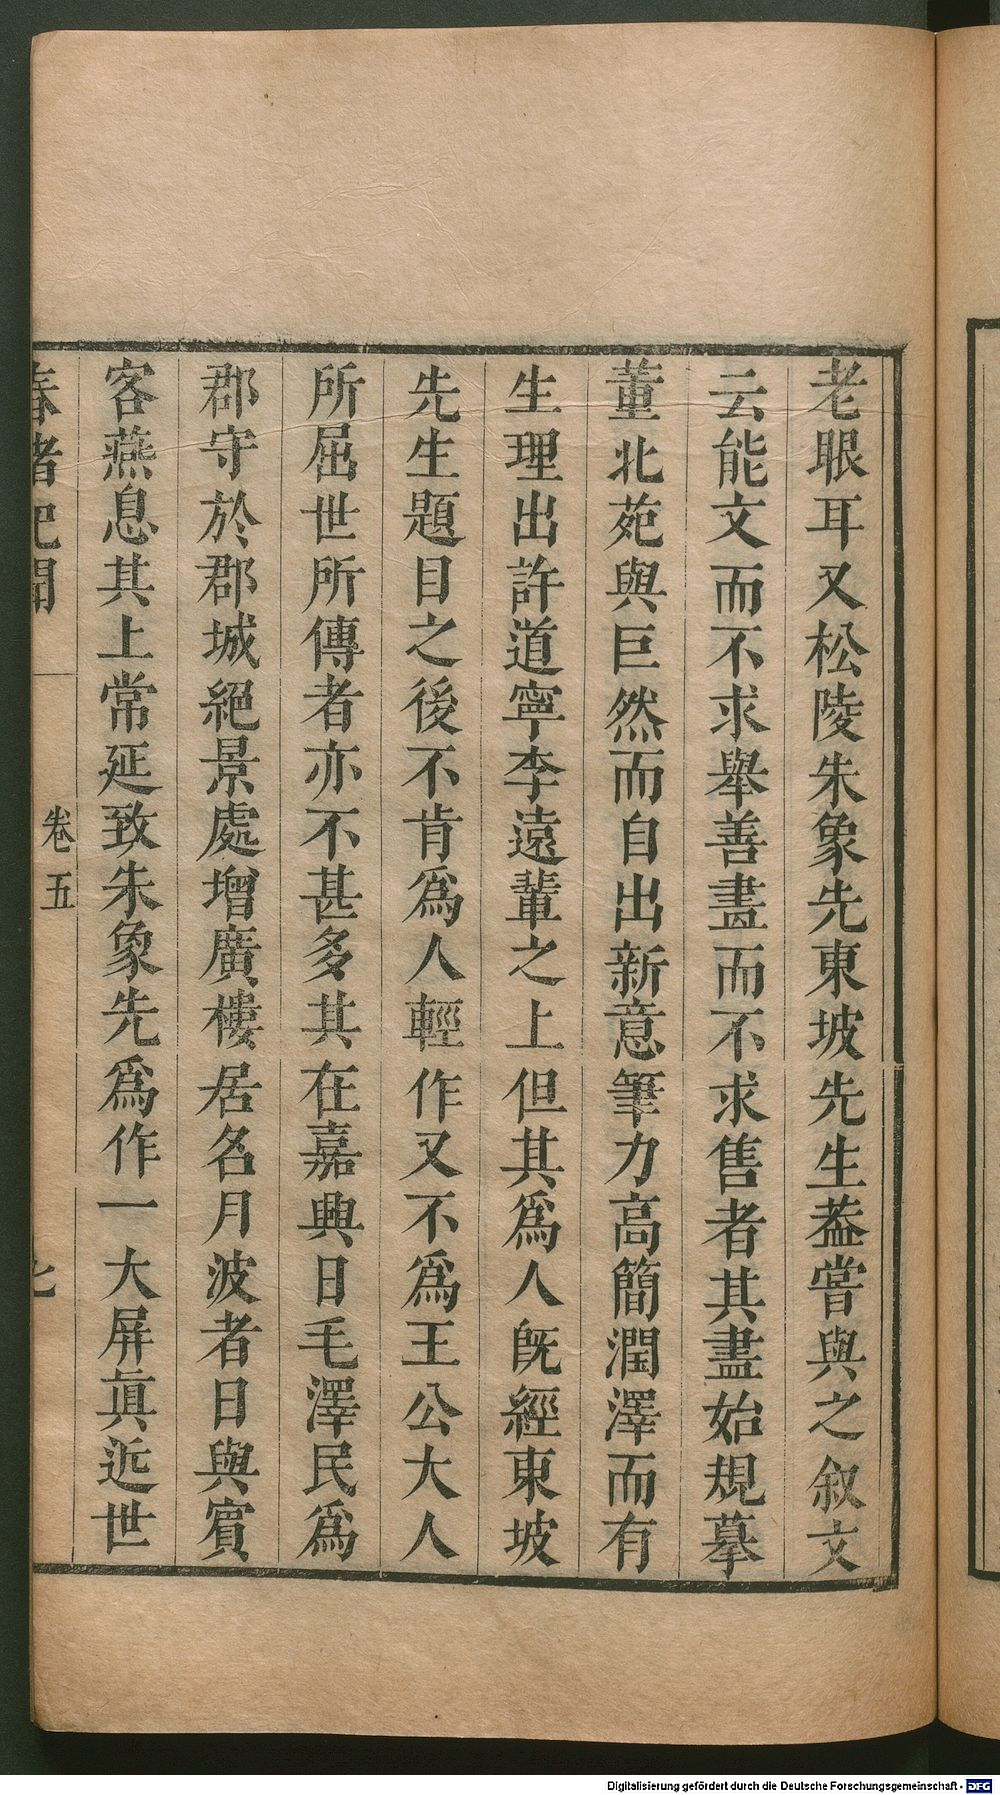 老眼耳又松陵朱象先東坡先生葢嘗與之叙文
云能文而不求舉善畫而不求售者其畫始規摹
董北苑與巨然而自出新意筆力高簡潤澤而有
生理出許道寧李遠輩之上但其爲人旣經東坡
先生題目之後不肯爲人輕作又不爲王公大人
所屈世所傳者亦不甚多其在嘉興日毛澤民爲
郡守於郡城絕景處增廣樓居名月波者日與賓
客燕息其上常延致朱象先爲作一大屏眞近世
春渚紀聞
卷五
七
Digitalisierung gefördert durch die Deutsche Forschungsgemeinschaft - DFG